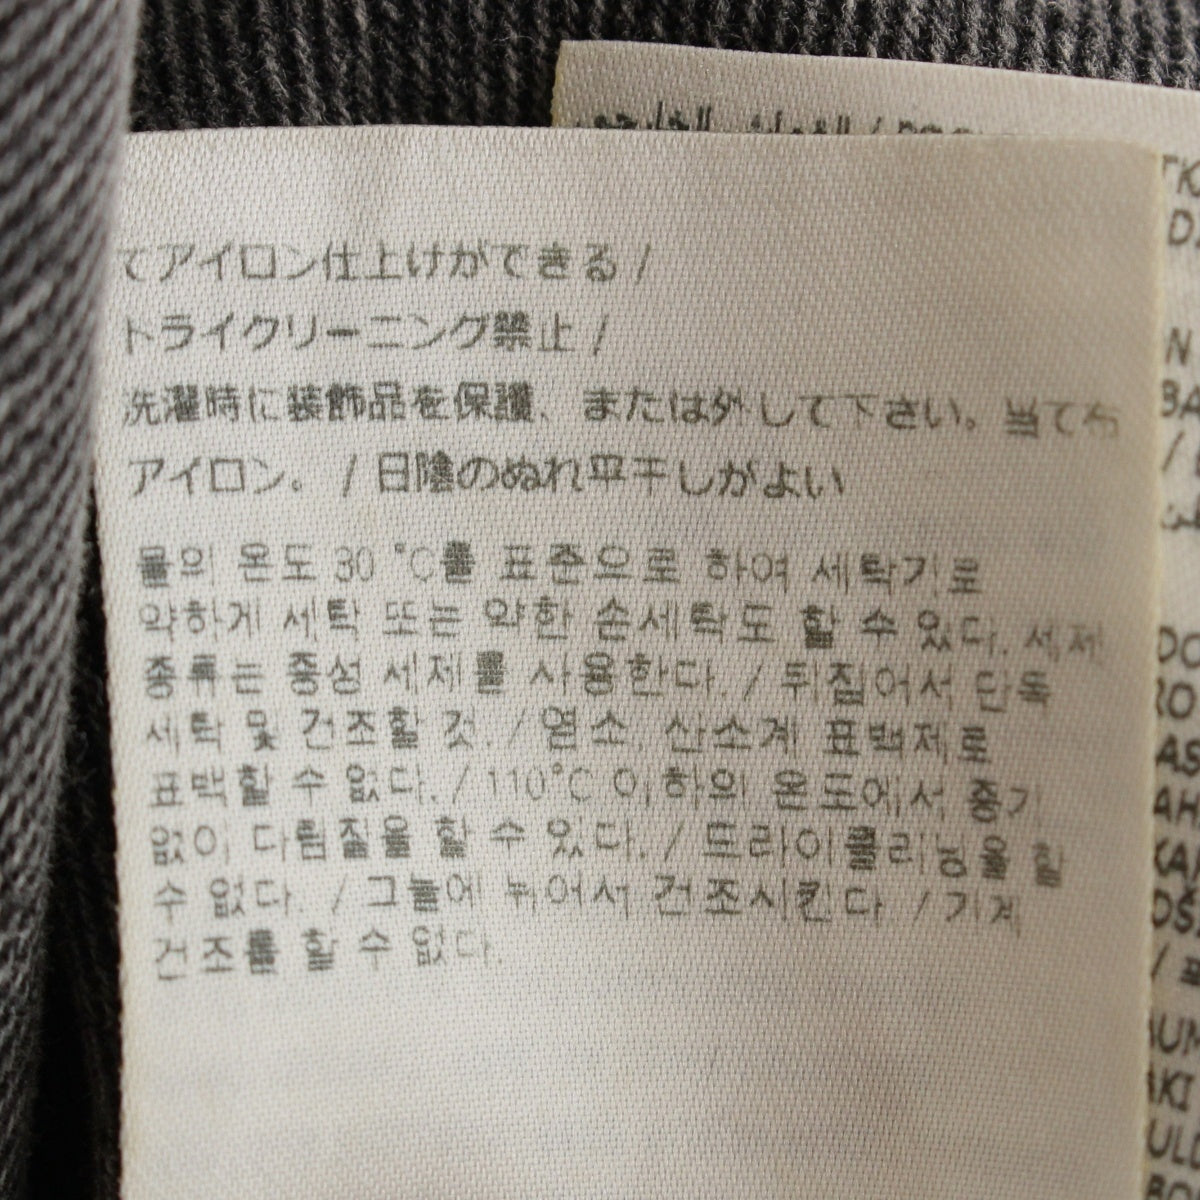 てアイロン仕上げができる /
ドライクリーニング禁止 /
洗濯時に装飾品を保護、または外して下さい。当て布
アイロン。 / 日陰のぬれ平干しがよい
물의 온도 30 °C를 표준으로 하여 세탁기로
약하게 세탁 또는 약한 손세탁도 할 수 있다. 세제
종류는 중성 세제를 사용한다. / 뒤집어서 단독
세탁 및 건조할 것. / 염소, 산소계 표백제로
표백할 수 없다. / 110°C 이하의 온도에서 증기
없이 다림질을 할 수 있다. / 드라이클리닝을 할
수 없다. / 그늘에 뉘어서 건조시킨다 / 기계
건조를 할 수 없다.